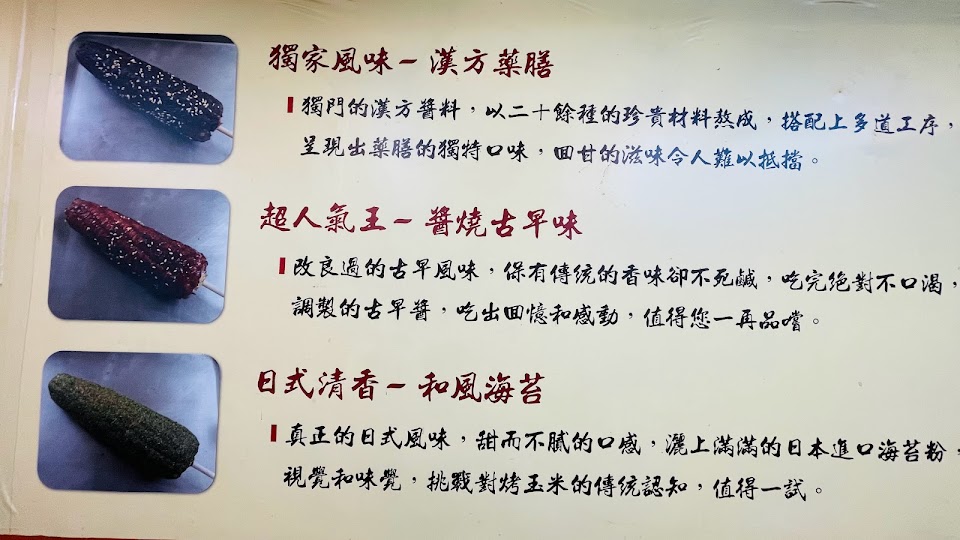 獨家風味－漢方藥膳
獨門的漢方醬料，以二十餘種的珍貴材料熬成，搭配上多道工序，
呈現出藥膳的獨特口味，回甘的滋味令人難以抵擋。
超人氣王－醬燒古早味
改良過的古早風味，保有傳統的香味卻不死鹹，吃完絕對不口渴，
調製的古早醬，吃出回憶和感動，值得您一再品嚐。
日式清香－和風海苔
真正的日式風味，甜而不膩的口感，灑上滿滿的日本進口海苔粉，
視覺和味覺，挑戰對烤玉米的傳統認知，值得一試。